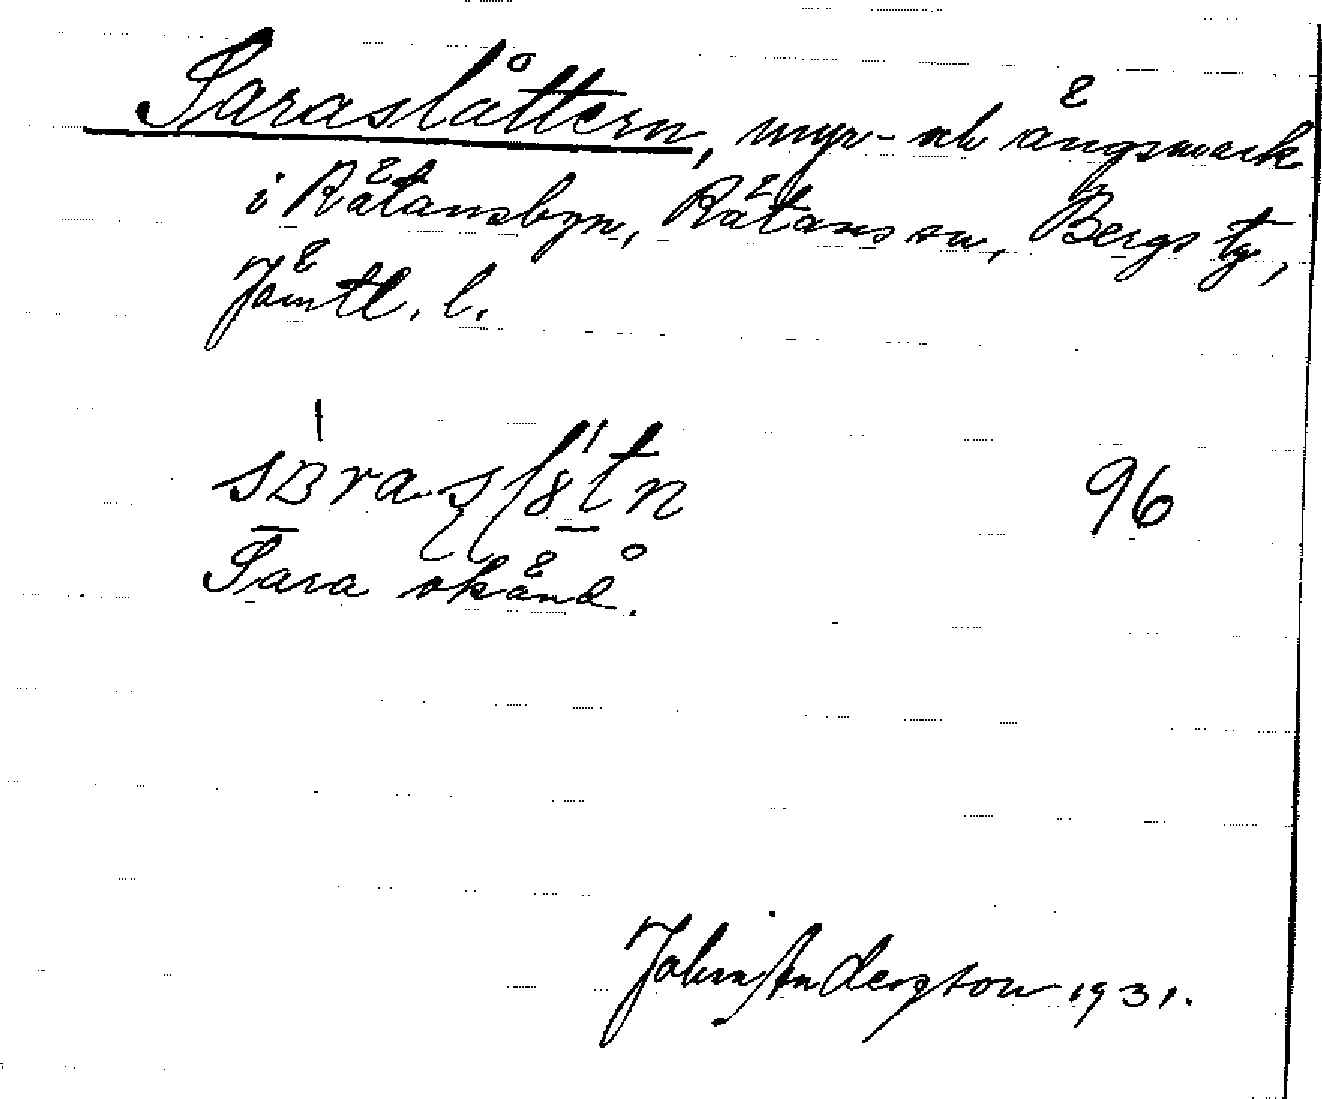 Saraslåttern, myr- och ängsmark
i Rätansbyn, Rätans sn, Bergs tg,
Jämtl. l.
96
Sara okänd.
John Andersson 1931.